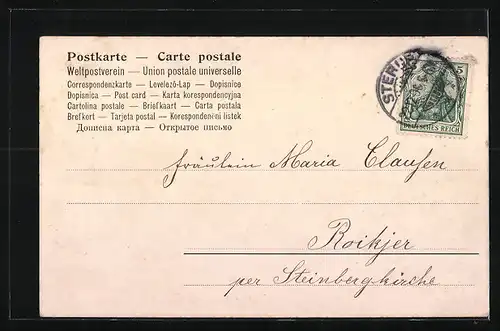 Postkarte — Carte postale
Weltpostverein — Union postale universelle
Correspondenzkarte — Levelező-Lap — Dopisnice
Dopisnica — Post card — Karta korespondencyjna
Cartolina postale — Briefkaart — Carta postala
Brefkort — Tarjeta postal — Korespondenčni listek
Дописна карта — Открытое письмо
5
DEUTSCHES REICH
Fräulein Maria Clausen
Roikjer
per Steinbergkirche